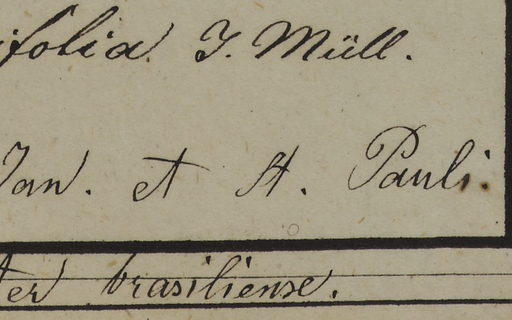 ifolia J. Müll.
Jan. et St. Pauli.
ter brasiliense.